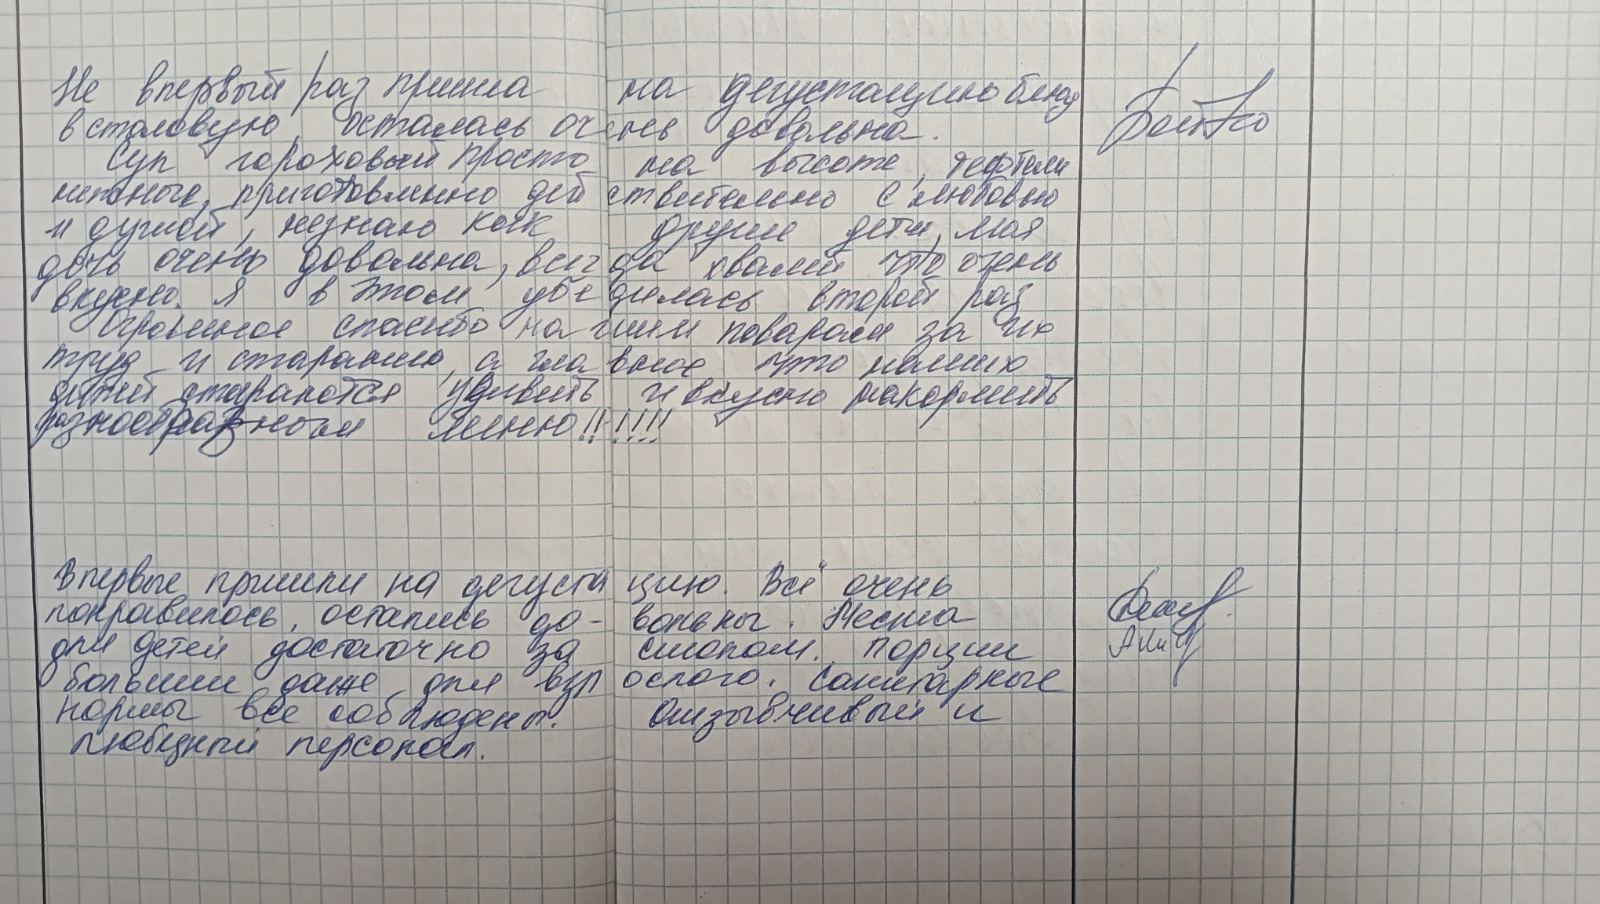 Не впервый раз пришла на дегустацию блюд
в столовую, осталась очень довольна.
Суп гороховый просто на высоте, тефтели
нежные, приготовленно действительно с любовью
и душой, незнаю как другие дети, моя
дочь очень довольна, всегда хвалит что очень
вкусно. Я в этом убедилась второй раз
Огромное спасибо нашим поварам за их
труд и старание, а главное что наших
детей стараются удивить и вкусно накормить
разнообразном меню!!!!!!
Впервые пришли на дегустацию. Всё очень
понравилось, остались до-вольны. Места
для детей достаточно за столом. Порции
больший даже для взрослого. Санитарные
нормы все соблюдены. Отзывчивый и
любезный персонал.